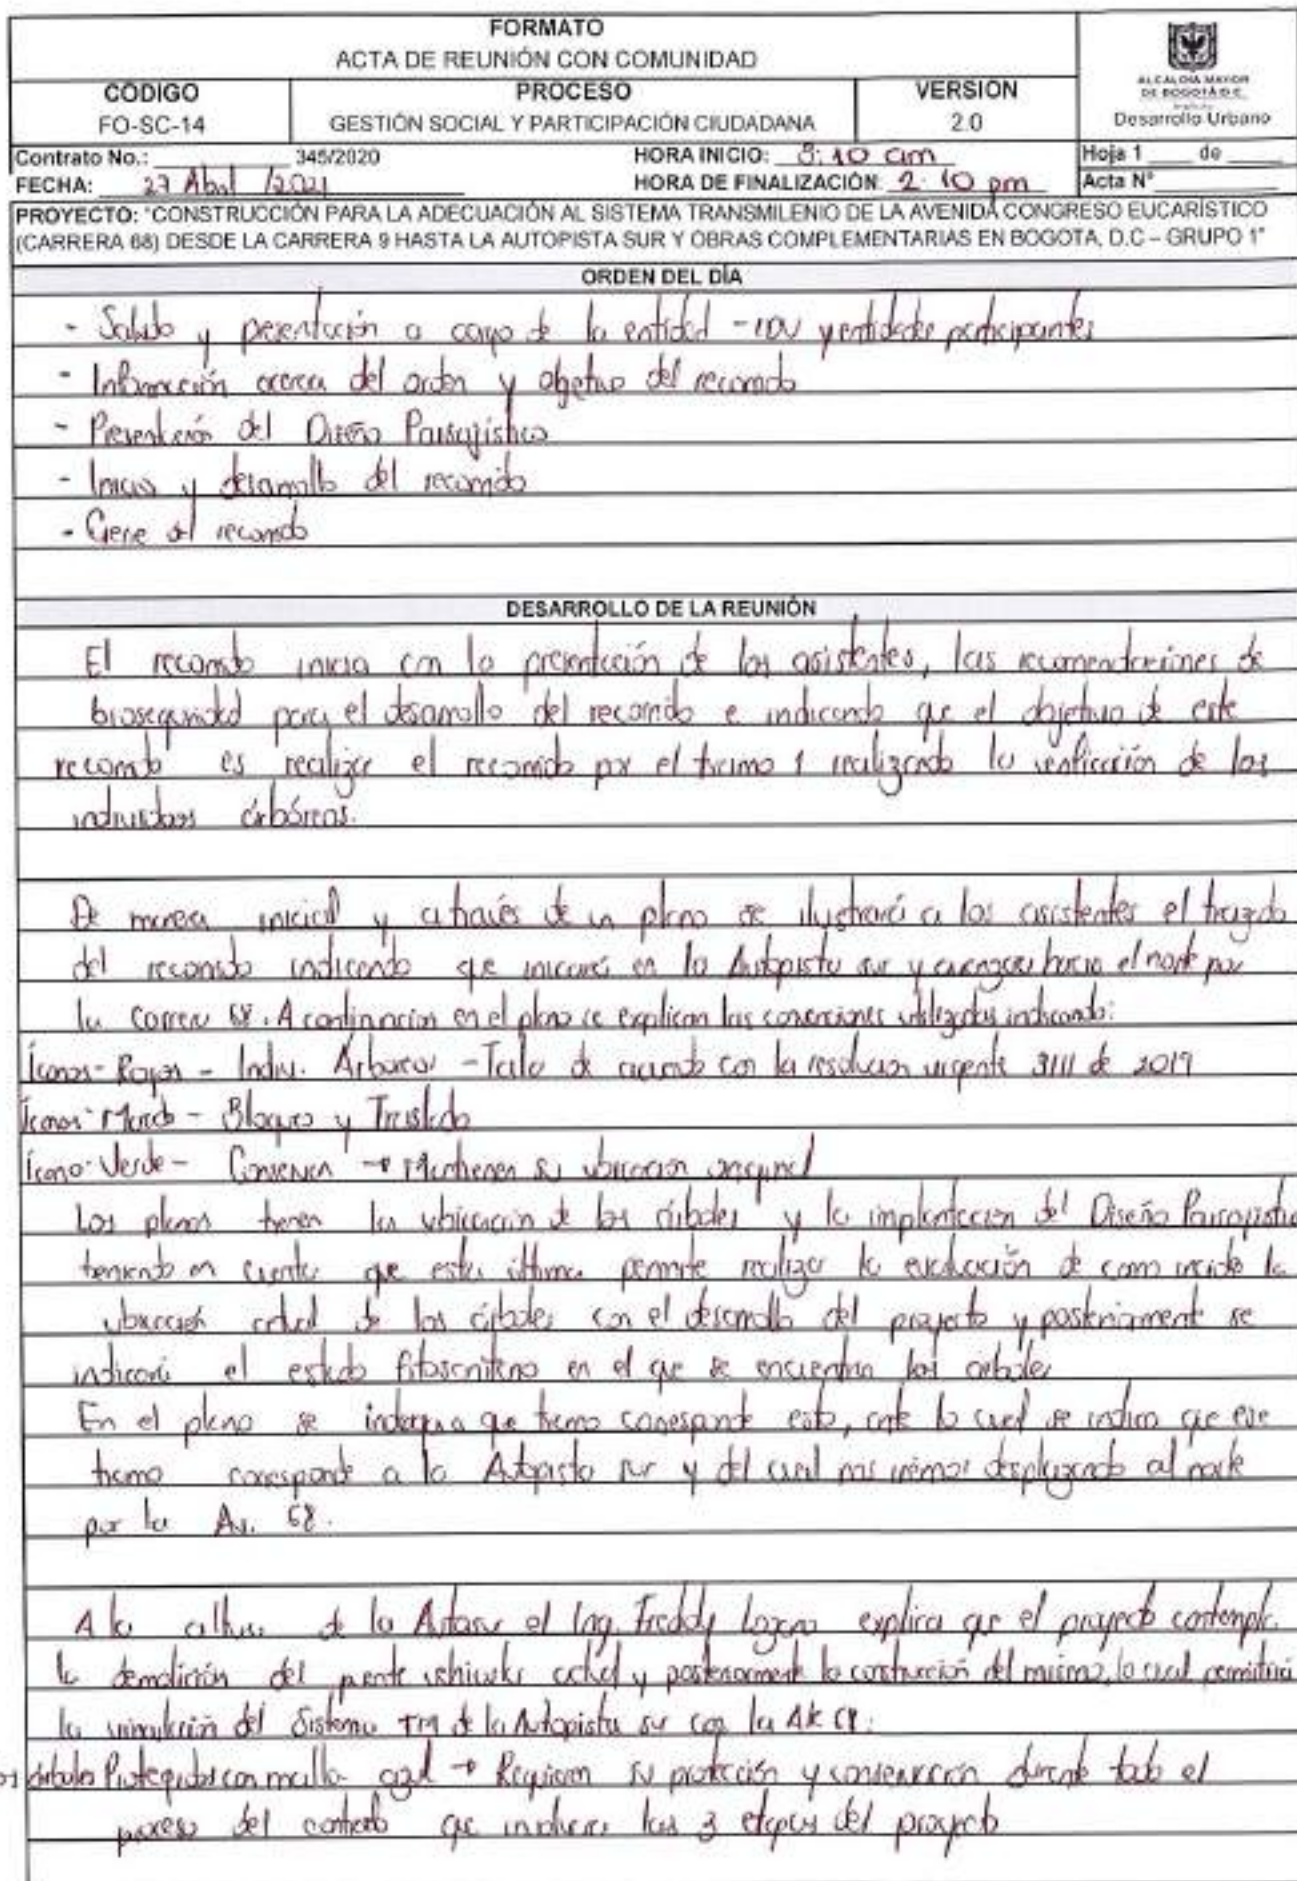 FORMATO
ACTA DE REUNIÓN CON COMUNIDAD
CÓDIGO
FO-SC-14
PROCESO
GESTIÓN SOCIAL Y PARTICIPACIÓN CIUDADANA
VERSIÓN
2.0
ALCALDÍA MAYOR
DE BOGOTÁ D.C.
Desarrollo Urbano
Contrato No.: 345/2020
HORA INICIO: 8:10 am
Hoja 1 ____ de ____
FECHA: 27 Abril /2021
HORA DE FINALIZACIÓN: 2:10 pm
Acta N°
PROYECTO: "CONSTRUCCIÓN PARA LA ADECUACIÓN AL SISTEMA TRANSMILENIO DE LA AVENIDA CONGRESO EUCARÍSTICO
(CARRERA 68) DESDE LA CARRERA 9 HASTA LA AUTOPISTA SUR Y OBRAS COMPLEMENTARIAS EN BOGOTA, D.C – GRUPO 1"
ORDEN DEL DÍA
- Saludo y presentación a cargo de la entidad - IDU y entidades participantes
- Información acerca del orden y objetivo del recorrido
- Presentación del Diseño Paisajístico
- Inicio y desarrollo del recorrido
- Cierre del recorrido
DESARROLLO DE LA REUNIÓN
El recorrido inicia con la presentación de los asistentes, las recomendaciones de
bioseguridad para el desarrollo del recorrido e indicando que el objetivo de este
recorrido es realizar el recorrido por el tramo 1 realizando la verificación de los
individuos árbóreos.
De manera inicial y a través de un plano se ilustrará a los asistentes el trazado
del recorrido indicando que iniciará en la Autopista sur y avanzará hacia el norte por
la Carrera 68. A continuación en el plano se explican las convenciones utilizadas indicando:
Íconos - Rojos - Indiv. Arboreos - Tala de acuerdo con la resolucion vigente 3111 de 2019
Íconos - Morado - Bloqueo y Traslado
Ícono - Verde - Conservan → Mantienen su ubicacion original
Los planos tienen la ubicación de los árboles y la implantacion del Diseño Paisajistico
teniendo en cuenta que esta última permite realizar la evaluación de como incide la
ubicación actual de los árboles con el desarrollo del proyecto y posteriormente se
indicará el estado fitosanitario en el que se encuentran los árboles
En el plano se indaga a que tramo corresponde esto, ante lo cual se indica que ese
tramo corresponde a la Autopista sur y del cual nos iremos desplazando al norte
por la Av. 68.
A la altura de la Autosur el Ing. Freddy Lozano explica que el proyecto contempla
la demolición del puente vehicular actual y posteriormente la construcción del mismo, lo cual permitirá
la vinculación del Sistema TM de la Autopista sur con la AK 68.
Los árboles Protegidos con malla azul → Requieren su protección y conservación durante todo el
proceso del contrato que involucra las 3 etapas del proyecto